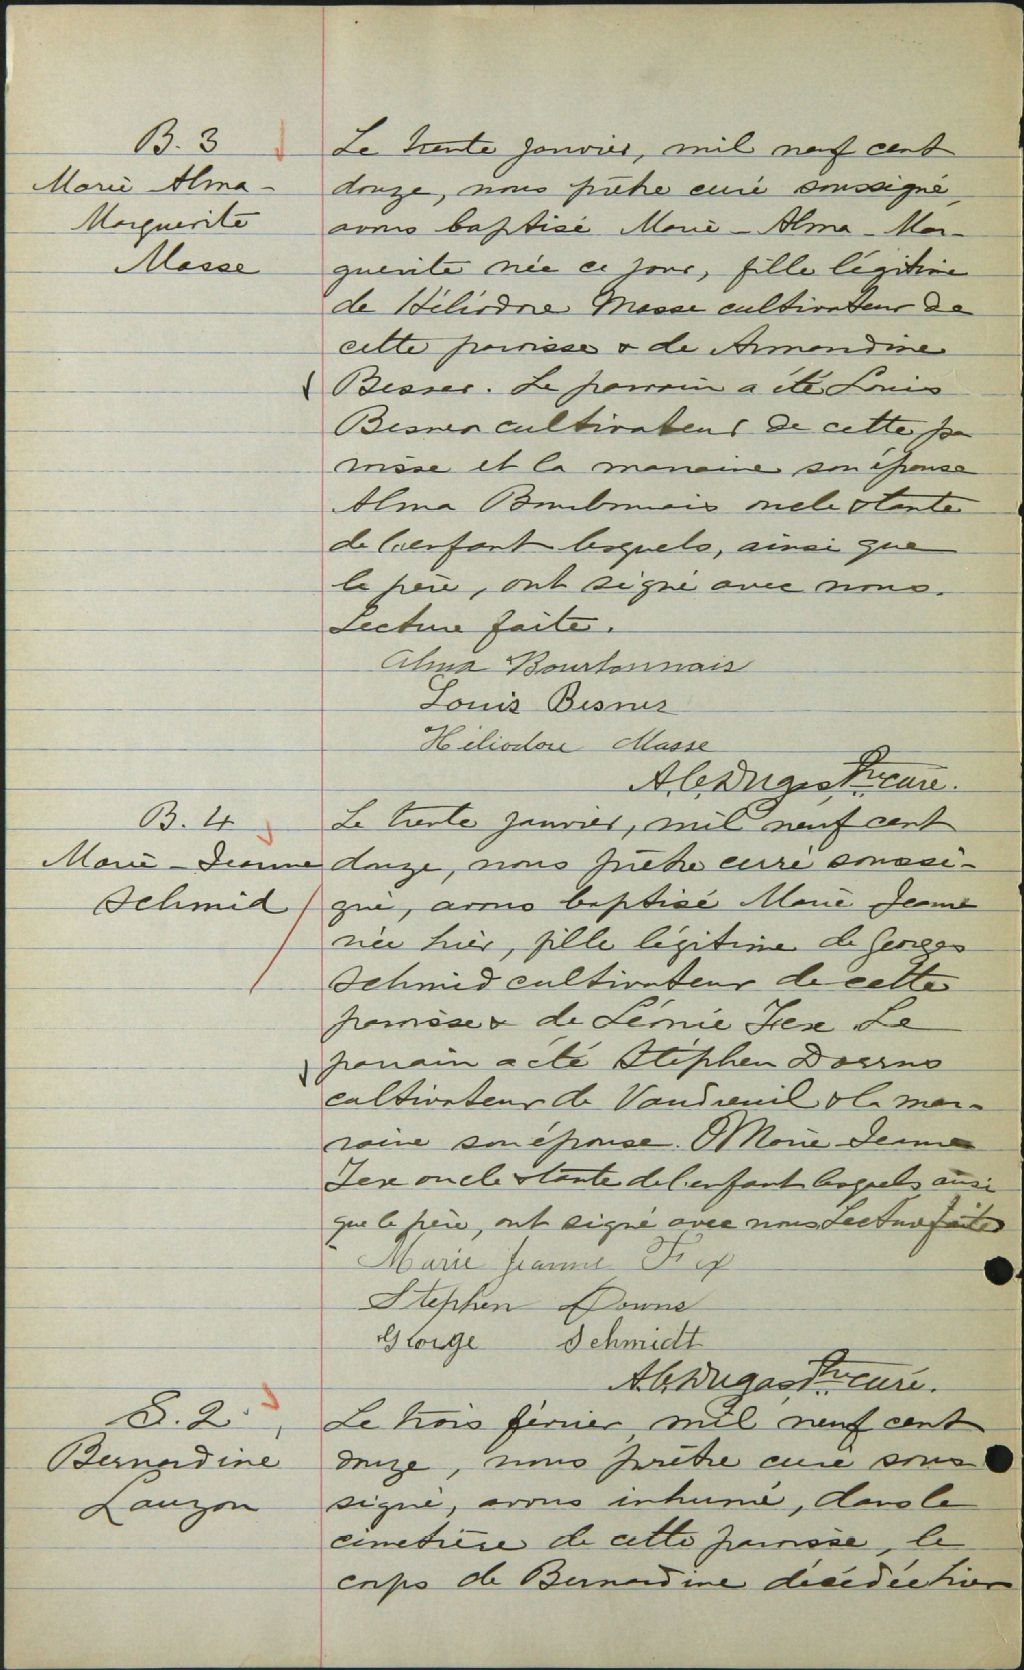 B. 3
Marie Alma-
Marguerite
Masse
Le trente janvier, mil neuf cent
douze, nous prêtre curé soussigné,
avons baptisé Marie-Alma-Mar-
guerite née ce jour, fille légitime
de Héliodore Masse cultivateur de
cette paroisse & de Armandine
Besner. Le parrain a été Louis
Besner cultivateur de cette pa
roisse et la marraine son épouse
Alma Bourbonnais oncle & tante
de l'enfant lesquels, ainsi que
le père, ont signé avec nous.
Lecture faite.
Alma Bourbonnais
Louis Besner
Héliodore Masse
A.C. Dugas, Ptre curé.
B. 4
Marie-Jeanne
Schmid
Le trente janvier, mil neuf cent
douze, nous prêtre curé soussi-
gné, avons baptisé Marie Jeanne
née hier, fille légitime de Georges
Schmid cultivateur de cette
paroisse & de Léonie Fex Le
parrain a été Stéphen
cultivateur de Vaudreuil & la mar-
raine son épouse. Marie-Jeanne
Fex oncle & tante de l'enfant lesquels ainsi
que le père, ont signé avec nous Lecture faite
Marie Jeanne Fex
Stephen Downs
George Schmidt
A.C. Dugas Ptre curé.
S. 2
Bernardine
Lauzon
Le trois février, mil neuf cent
douze, nous prêtre curé sous
signé, avons inhumé, dans le
cimetière de cette paroisse, le
corps de Bernardine décédée hier